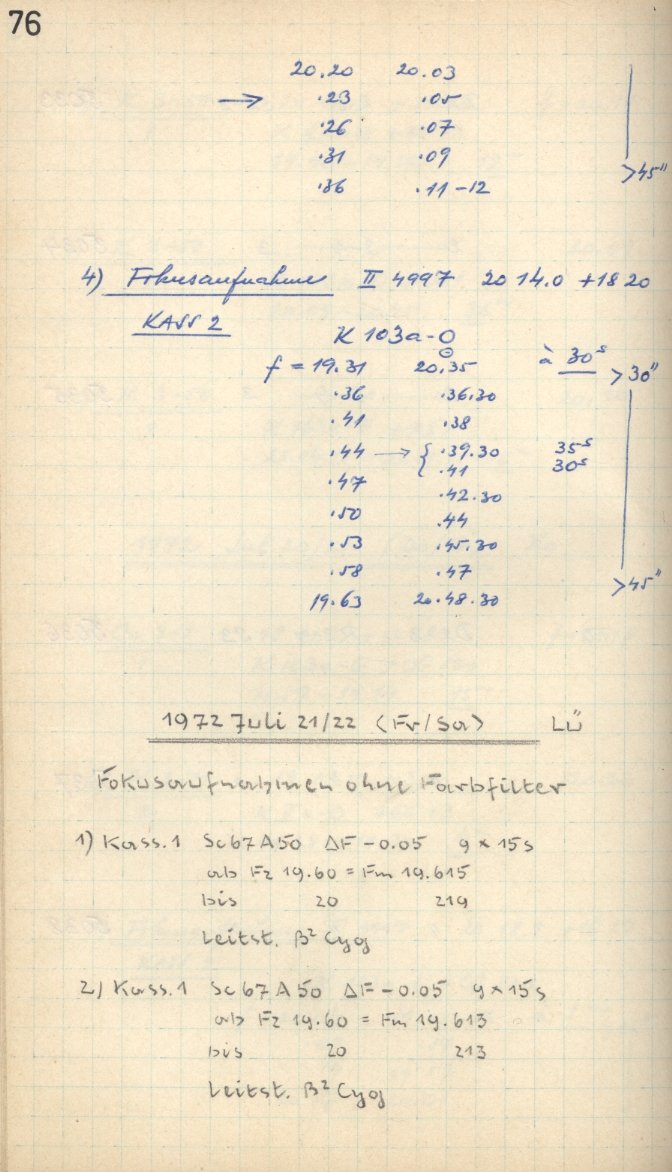 76
20.20 20.03
→ .23 .05
.26 .07
.31 .09
.36 .11-12 >45"
4) Fokusaufnahme II 4997 20 14.0 +18 20
KASS 2
K 103a-O
f = 19.31 20.35 à 30s >30"
.36 .36.30
.41 .38
.44 → { .39.30 35s
.47 .41 30s
.50 .42.30
.53 .44
.58 .45.30
19.63 .47 >45"
20.48.30
1972 Juli 21/22 (Fr/Sa) LÜ
Fokusaufnahmen ohne Farbfilter
1) Kass. 1 Sc67A50 ΔF -0.05 9 × 15s
ab Fz 19.60 = Fm 19.615
bis 20 219
Leitst. β² Cyg
2) Kass. 1 Sc67A50 ΔF -0.05 9 × 15s
ab Fz 19.60 = Fm 19.613
bis 20 213
Leitst. β² Cyg